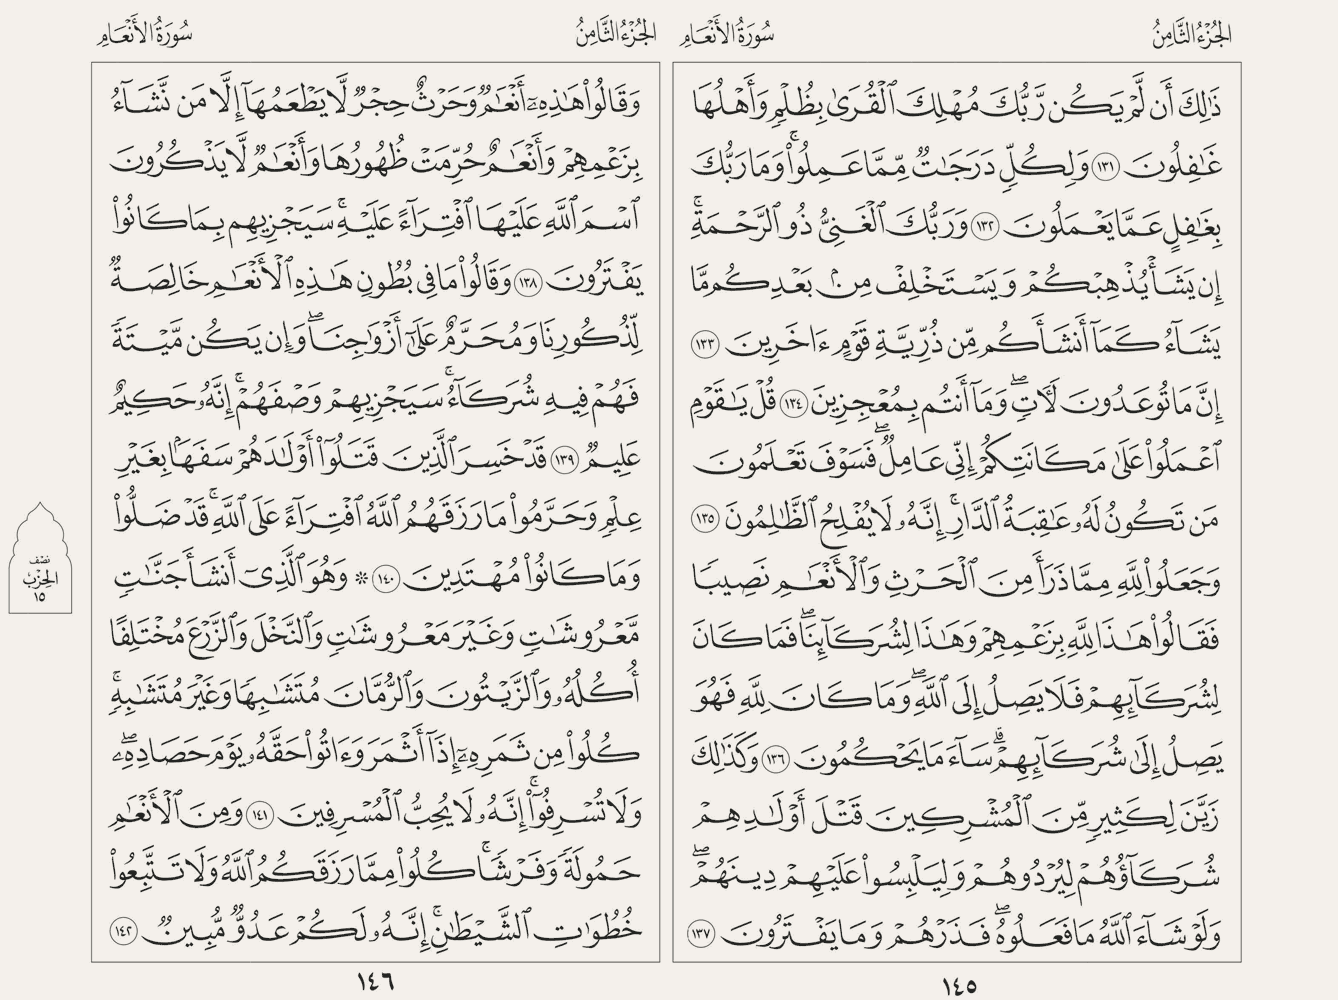 الجُزْءُ الثَّامِنُ سُورَةُ الأَنْعَامِ
ذَٰلِكَ أَن لَّمْ يَكُن رَّبُّكَ مُهْلِكَ ٱلْقُرَىٰ بِظُلْمٍ وَأَهْلُهَا
غَٰفِلُونَ ١٣١ وَلِكُلٍّ دَرَجَٰتٌ مِّمَّا عَمِلُوا۟ۚ وَمَا رَبُّكَ
بِغَٰفِلٍ عَمَّا يَعْمَلُونَ ١٣٢ وَرَبُّكَ ٱلْغَنِىُّ ذُو ٱلرَّحْمَةِۚ
إِن يَشَأْ يُذْهِبْكُمْ وَيَسْتَخْلِفْ مِنۢ بَعْدِكُم مَّا
يَشَآءُ كَمَآ أَنشَأَكُم مِّن ذُرِّيَّةِ قَوْمٍ ءَاخَرِينَ ١٣٣
إِنَّ مَا تُوعَدُونَ لَـَٔاتٍۖ وَمَآ أَنتُم بِمُعْجِزِينَ ١٣٤ قُلْ يَٰقَوْمِ
ٱعْمَلُوا۟ عَلَىٰ مَكَانَتِكُمْ إِنِّى عَامِلٌۖ فَسَوْفَ تَعْلَمُونَ
مَن تَكُونُ لَهُۥ عَٰقِبَةُ ٱلدَّارِۚ إِنَّهُۥ لَا يُفْلِحُ ٱلظَّٰلِمُونَ ١٣٥
وَجَعَلُوا۟ لِلَّهِ مِمَّا ذَرَأَ مِنَ ٱلْحَرْثِ وَٱلْأَنْعَٰمِ نَصِيبًا
فَقَالُوا۟ هَٰذَا لِلَّهِ بِزَعْمِهِمْ وَهَٰذَا لِشُرَكَآئِنَاۖ فَمَا كَانَ
لِشُرَكَآئِهِمْ فَلَا يَصِلُ إِلَى ٱللَّهِۖ وَمَا كَانَ لِلَّهِ فَهُوَ
يَصِلُ إِلَىٰ شُرَكَآئِهِمْۗ سَآءَ مَا يَحْكُمُونَ ١٣٦ وَكَذَٰلِكَ
زَيَّنَ لِكَثِيرٍ مِّنَ ٱلْمُشْرِكِينَ قَتْلَ أَوْلَٰدِهِمْ
شُرَكَآؤُهُمْ لِيُرْدُوهُمْ وَلِيَلْبِسُوا۟ عَلَيْهِمْ دِينَهُمْۖ
وَلَوْ شَآءَ ٱللَّهُ مَا فَعَلُوهُۖ فَذَرْهُمْ وَمَا يَفْتَرُونَ ١٣٧
١٤٥
الجُزْءُ الثَّامِنُ سُورَةُ الأَنْعَامِ
وَقَالُوا۟ هَٰذِهِۦٓ أَنْعَٰمٌ وَحَرْثٌ حِجْرٌ لَّا يَطْعَمُهَآ إِلَّا مَن نَّشَآءُ
بِزَعْمِهِمْ وَأَنْعَٰمٌ حُرِّمَتْ ظُهُورُهَا وَأَنْعَٰمٌ لَّا يَذْكُرُونَ
ٱسْمَ ٱللَّهِ عَلَيْهَا ٱفْتِرَآءً عَلَيْهِۚ سَيَجْزِيهِم بِمَا كَانُوا۟
يَفْتَرُونَ ١٣٨ وَقَالُوا۟ مَا فِى بُطُونِ هَٰذِهِ ٱلْأَنْعَٰمِ خَالِصَةٌ
لِّذُكُورِنَا وَمُحَرَّمٌ عَلَىٰٓ أَزْوَٰجِنَاۖ وَإِن يَكُن مَّيْتَةً
فَهُمْ فِيهِ شُرَكَآءُۚ سَيَجْزِيهِمْ وَصْفَهُمْۚ إِنَّهُۥ حَكِيمٌ
عَلِيمٌ ١٣٩ قَدْ خَسِرَ ٱلَّذِينَ قَتَلُوٓا۟ أَوْلَٰدَهُمْ سَفَهًۢا بِغَيْرِ
عِلْمٍ وَحَرَّمُوا۟ مَا رَزَقَهُمُ ٱللَّهُ ٱفْتِرَآءً عَلَى ٱللَّهِۚ قَدْ ضَلُّوا۟
وَمَا كَانُوا۟ مُهْتَدِينَ ١٤٠ ۞ وَهُوَ ٱلَّذِىٓ أَنشَأَ جَنَّٰتٍ
مَّعْرُوشَٰتٍ وَغَيْرَ مَعْرُوشَٰتٍ وَٱلنَّخْلَ وَٱلزَّرْعَ مُخْتَلِفًا
أُكُلُهُۥ وَٱلزَّيْتُونَ وَٱلرُّمَّانَ مُتَشَٰبِهًا وَغَيْرَ مُتَشَٰبِهٍۚ
كُلُوا۟ مِن ثَمَرِهِۦٓ إِذَآ أَثْمَرَ وَءَاتُوا۟ حَقَّهُۥ يَوْمَ حَصَادِهِۦۖ
وَلَا تُسْرِفُوٓا۟ۚ إِنَّهُۥ لَا يُحِبُّ ٱلْمُسْرِفِينَ ١٤١ وَمِنَ ٱلْأَنْعَٰمِ
حَمُولَةً وَفَرْشًاۚ كُلُوا۟ مِمَّا رَزَقَكُمُ ٱللَّهُ وَلَا تَتَّبِعُوا۟
خُطُوَٰتِ ٱلشَّيْطَٰنِۚ إِنَّهُۥ لَكُمْ عَدُوٌّ مُّبِينٌ ١٤٢
١٤٦
نصف
الحزب
١٥